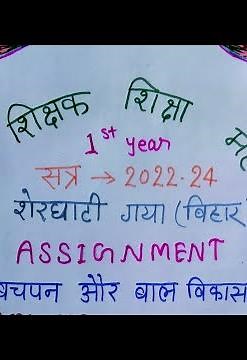 शिक्षक शिक्षा
1st year
सत्र → 2022-24
शेरघाटी गया (बिहार
ASSIGNMENT
बचपन और बाल विकास